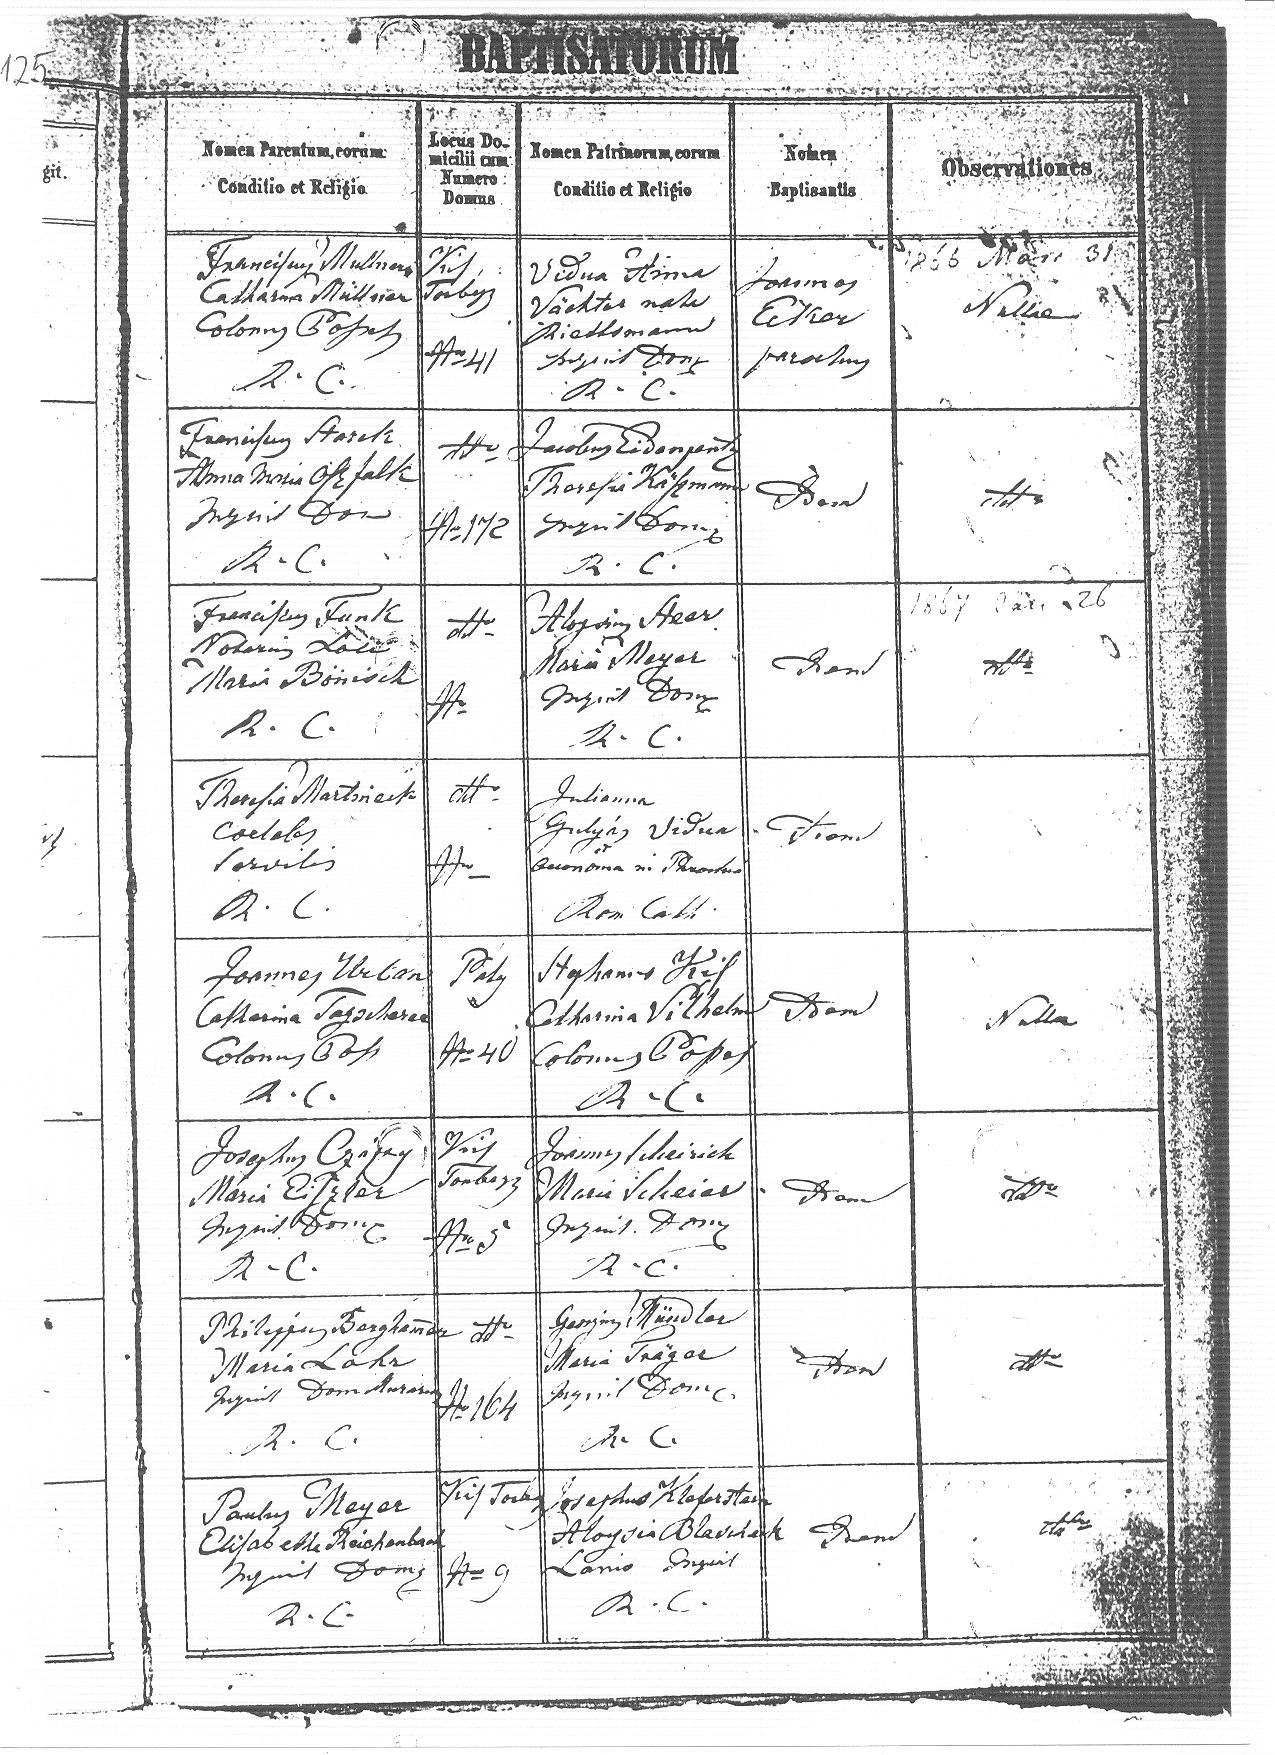 125
BAPTISATORUM
git.
Nomen Parentum, eorum
Conditio et Religio
Locus Do-
micilii cum
Numero
Domus
Nomen Patrinorum, eorum
Conditio et Religio
Nomen
Baptisantis
Observationes
Franciscus Mullner
Catharina Müllner
Colonus
R. C.
Kis
Torbágy
Nro 41
Vidua Anna
Vächter nata
Riedlsmann
Inquil Dom
R. C.
Joannes
Eiker
parochus
1866 Mart. 31
Nullae
Franciscus Starck
Anna Maria
Inquil Dom
R. C.
dtto
Nro 172
Jacobus
Theresia
Inquil Dom
R. C.
Idem
dtto
Franciscus Funk
Notarius Loci
Maria Bönisch
R. C.
dtto
Nro
Aloysius Steer
Maria Meyer
Inquil Dom
R. C.
Idem
1867 26
dtto
Theresia Martineck
Coelebs
Servilis
R. C.
dtto
Nro
Julianna
Gulyás Vidua
et
Oeconoma
Rom Cath.
Idem
Joannes Urban
Catharina Tagscherer
Colonus Poss
R. C.
Páty
Nro 40
Stephanus Kis
Catharina Vilhelm
Colonus
R. C.
Idem
Nulla
Josephus
Maria Eitzler
Inquil Dom
R. C.
Kis
Torbágy
Nro 5
Joannes Scheirich
Maria Scheier
Inquil. Dom
R. C.
Idem
dtto
Philippus Berghammer
Maria Lohr
Inquil Dom Murarius
R. C.
dtto
Nro 164
Georgius Mündler
Maria Träger
Inquil Dom
R. C.
Idem
dtto
Paulus Meyer
Elisabetha Reichenbach
Inquil Dom
R. C.
Kis Torbágy
Nro 9
Josephus Kleferstein
Aloysia Blascheck
Lanio Inquil
R. C.
Idem
dtto